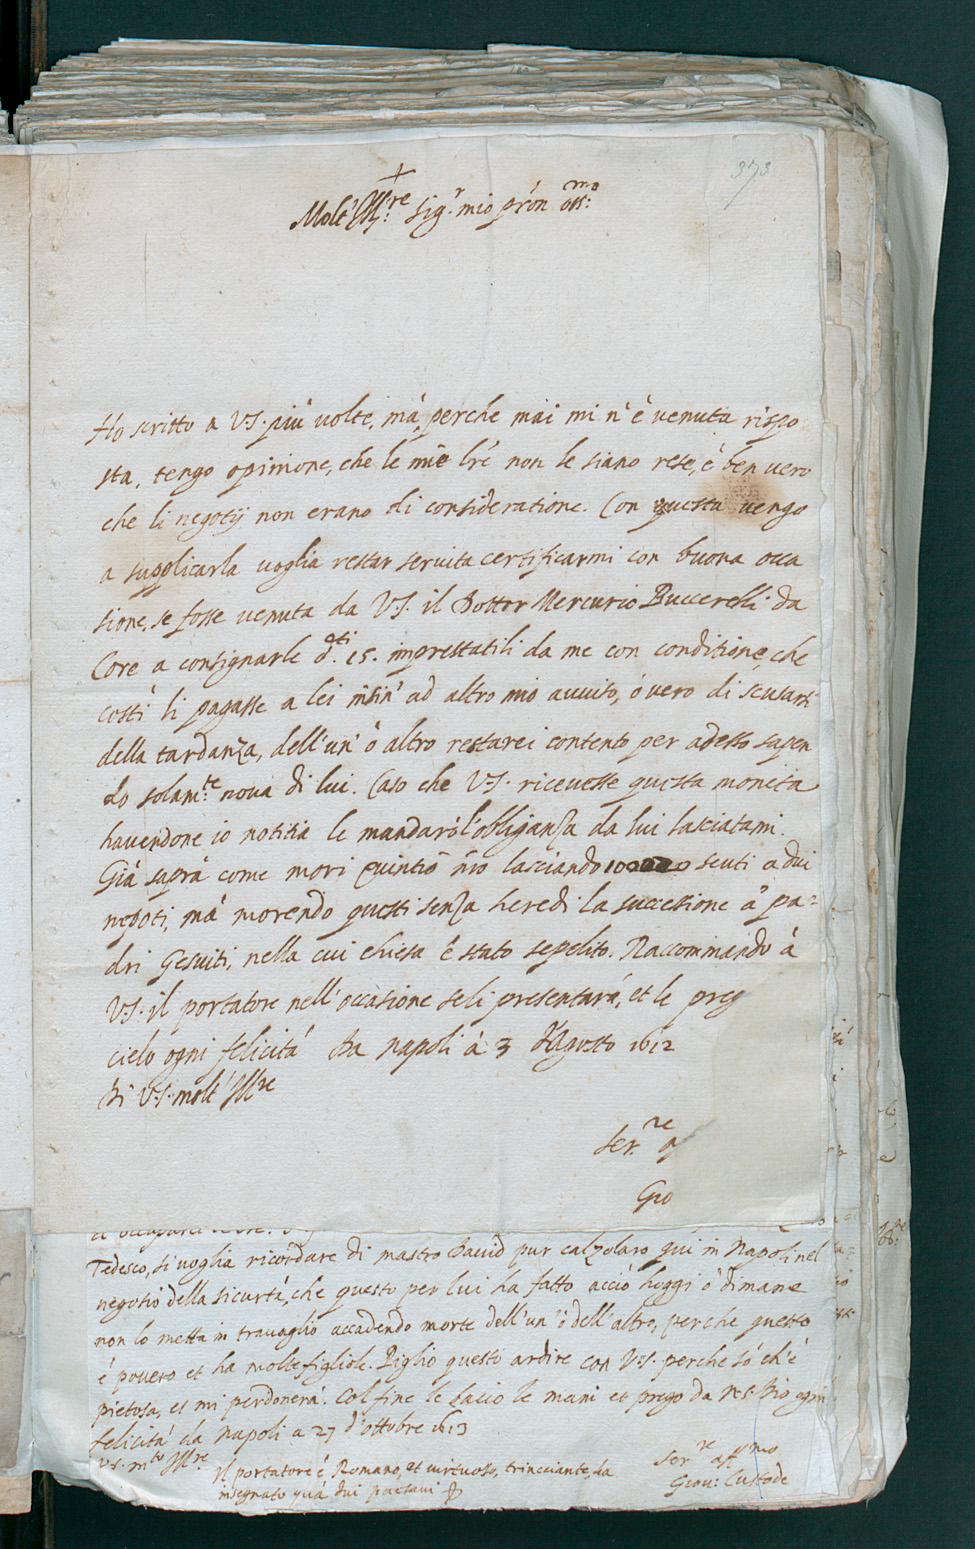 373
+
Molt' Ill:re sig.r mio prón oss:mo
Ho scritto a V.S. più volte, má perche mai mi n'è venuta rispo
sta, tengo opinione, che le mie lré non le siano rese, è ben vero
che li negotij non erano di consideratione. Con questa vengo
a supplicarla voglia restar servita certificarmi con buona occa
sione, se fosse venuta da V.S. il Dottor Mercurio Buccerelli da
Core a consignarle d.ti 15. imprestatili da me con conditione, che
costì li pagasse a lei insin' ad altro mio avviso, ó vero di scusarsi
della tardanza, dell'un' ò altro restarei contento per adesso sapen
do solam:te nova di lui. Caso che V.S. ricevesse questa moneta
havendone io notitia le mandaró l'obliganza da lui lasciatami.
Giá saprá come morì Quintio nró lasciando scuti a dui
nepoti, má morendo questi senza heredi la successione a' pa=
dri Gesuiti, nella cui chiesa è stato sepelito. Raccommando á
V.S. il portatore nell'occasione seli presentará, et le preg
cielo ogni felicitá Da Napoli á 3 d'Agosto 1612
Di V.S. molt' Ill.re
Ser.re
Gio
Tedesco, si voglia ricordare di mastro David pur calzolaro qui in Napoli nel
negotio della sicurtá, che questo per lui ha fatto acciò hoggi ò dimane
non lo metta in travaglio accadendo morte dell'un' ò dell'altro, perche questo
é povero et ha molte figliole. Piglio questo ardire con V.S. perche só ch'é
pietosa, et mi perdonerá. Col fine le bacio le mani et prego da N.S. Dio ogni
felicitá da Napoli a 27 d'ottobre 1613
V.S. m.to Ill.re
Ser.re aff.mo
Il portatore é Romano, et virtuoso, trinciante, ha
Giov: Custode
insegnato quá dui paesani